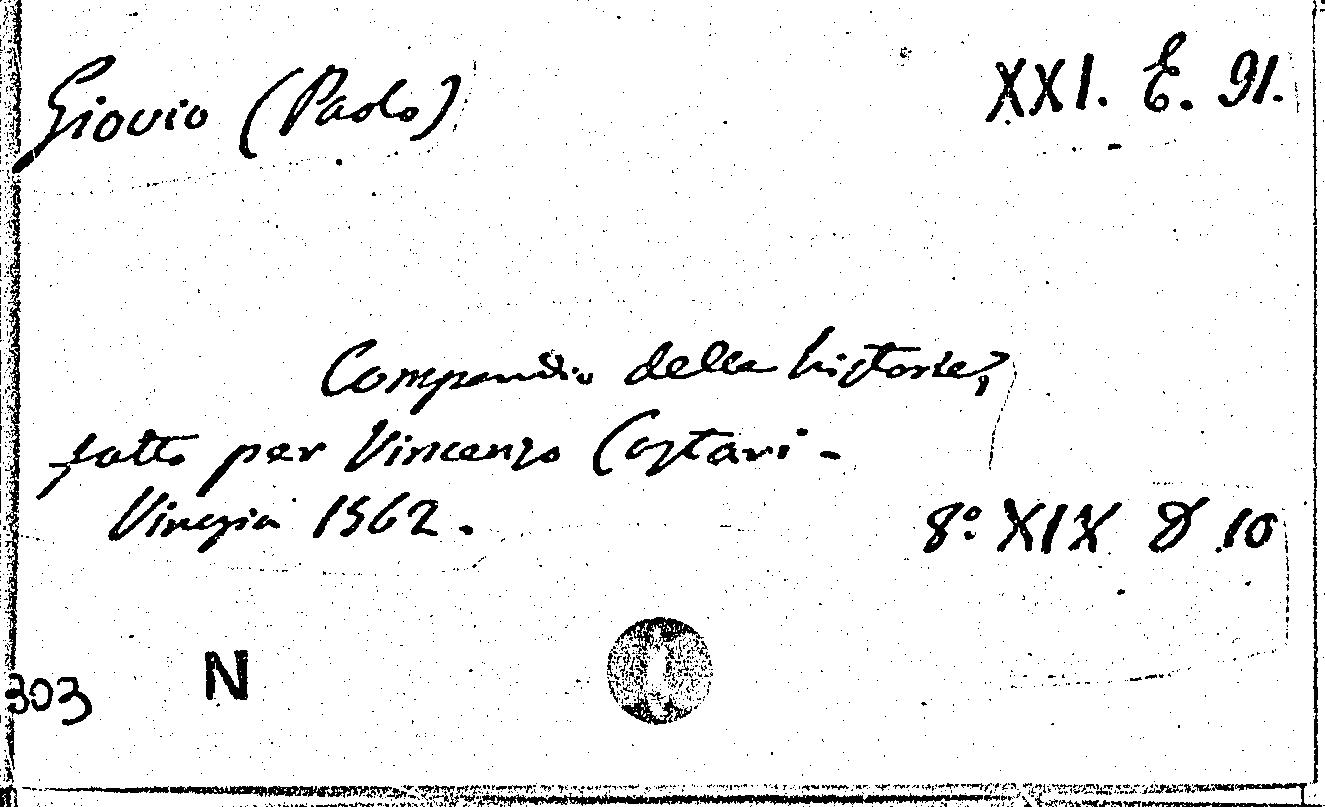 Giovio (Paolo)
XXI. E. 91.
Compendio della historie,
fatto per Vincenzo Cartari -
Vinegia 1562.
8.° XIX D 10
303
N